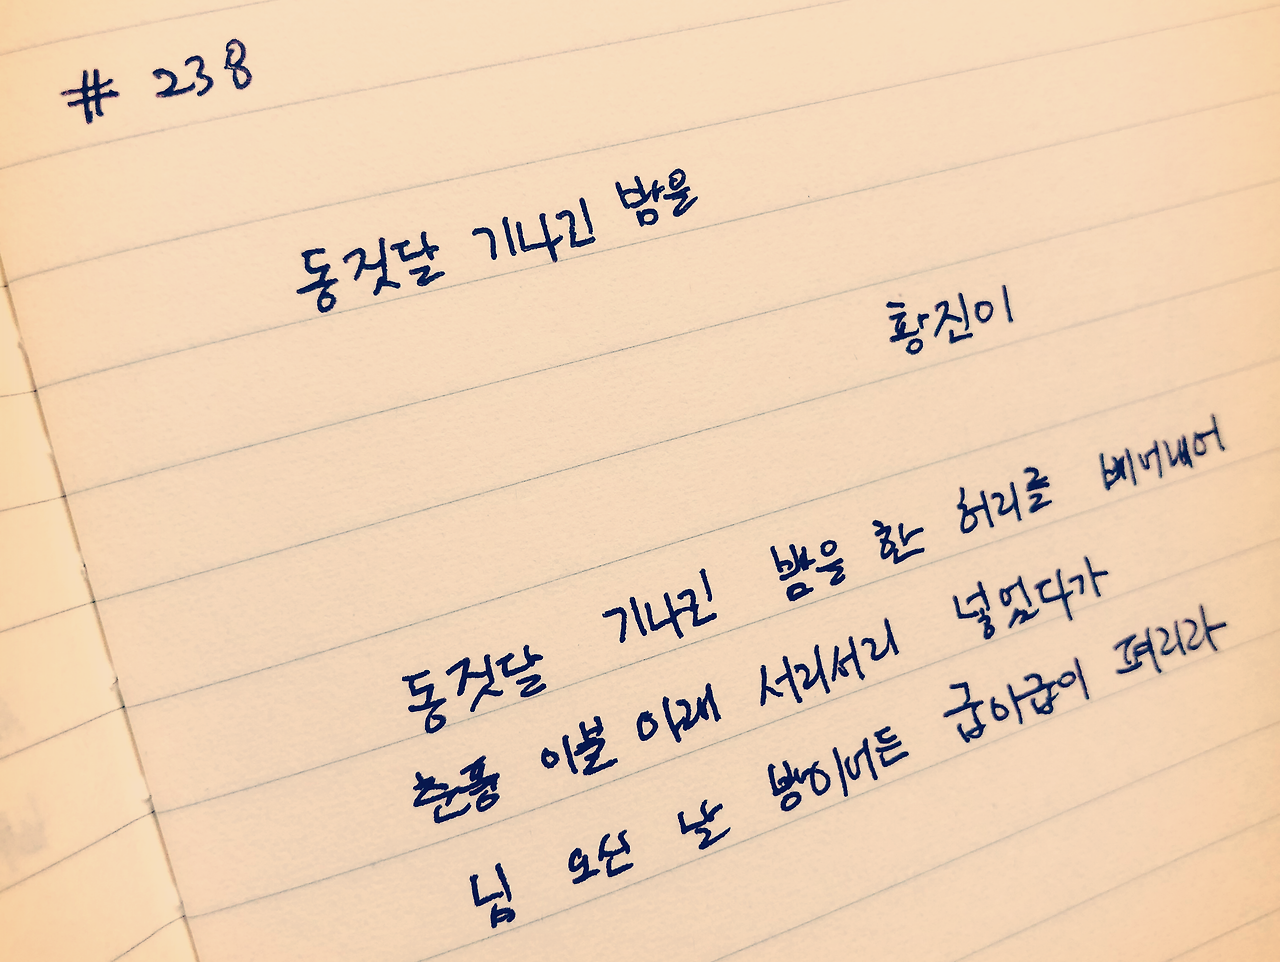 # 238
동짓달 기나긴 밤을
황진이
동짓달 기나긴 밤을 한 허리를 베어내어
춘풍 이불 아래 서리서리 넣었다가
님 오신 날 밤이어든 굽이굽이 펴리라